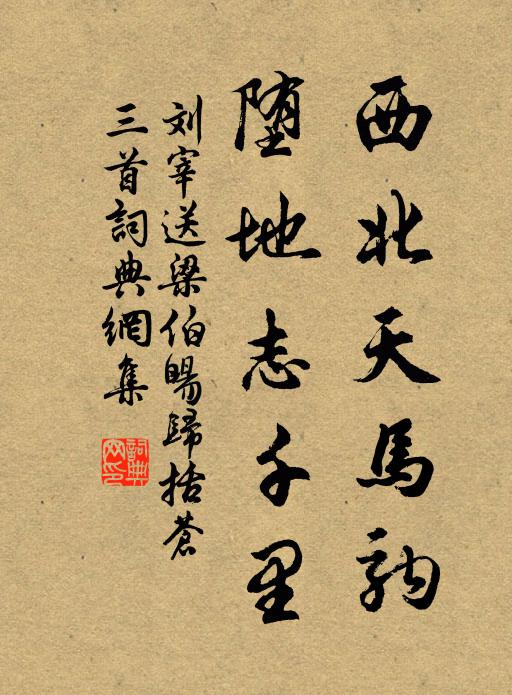 西北天馬駒
墮地志千里
刘宰送梁伯暘歸括蒼
三首詞典網集
詞典
网印